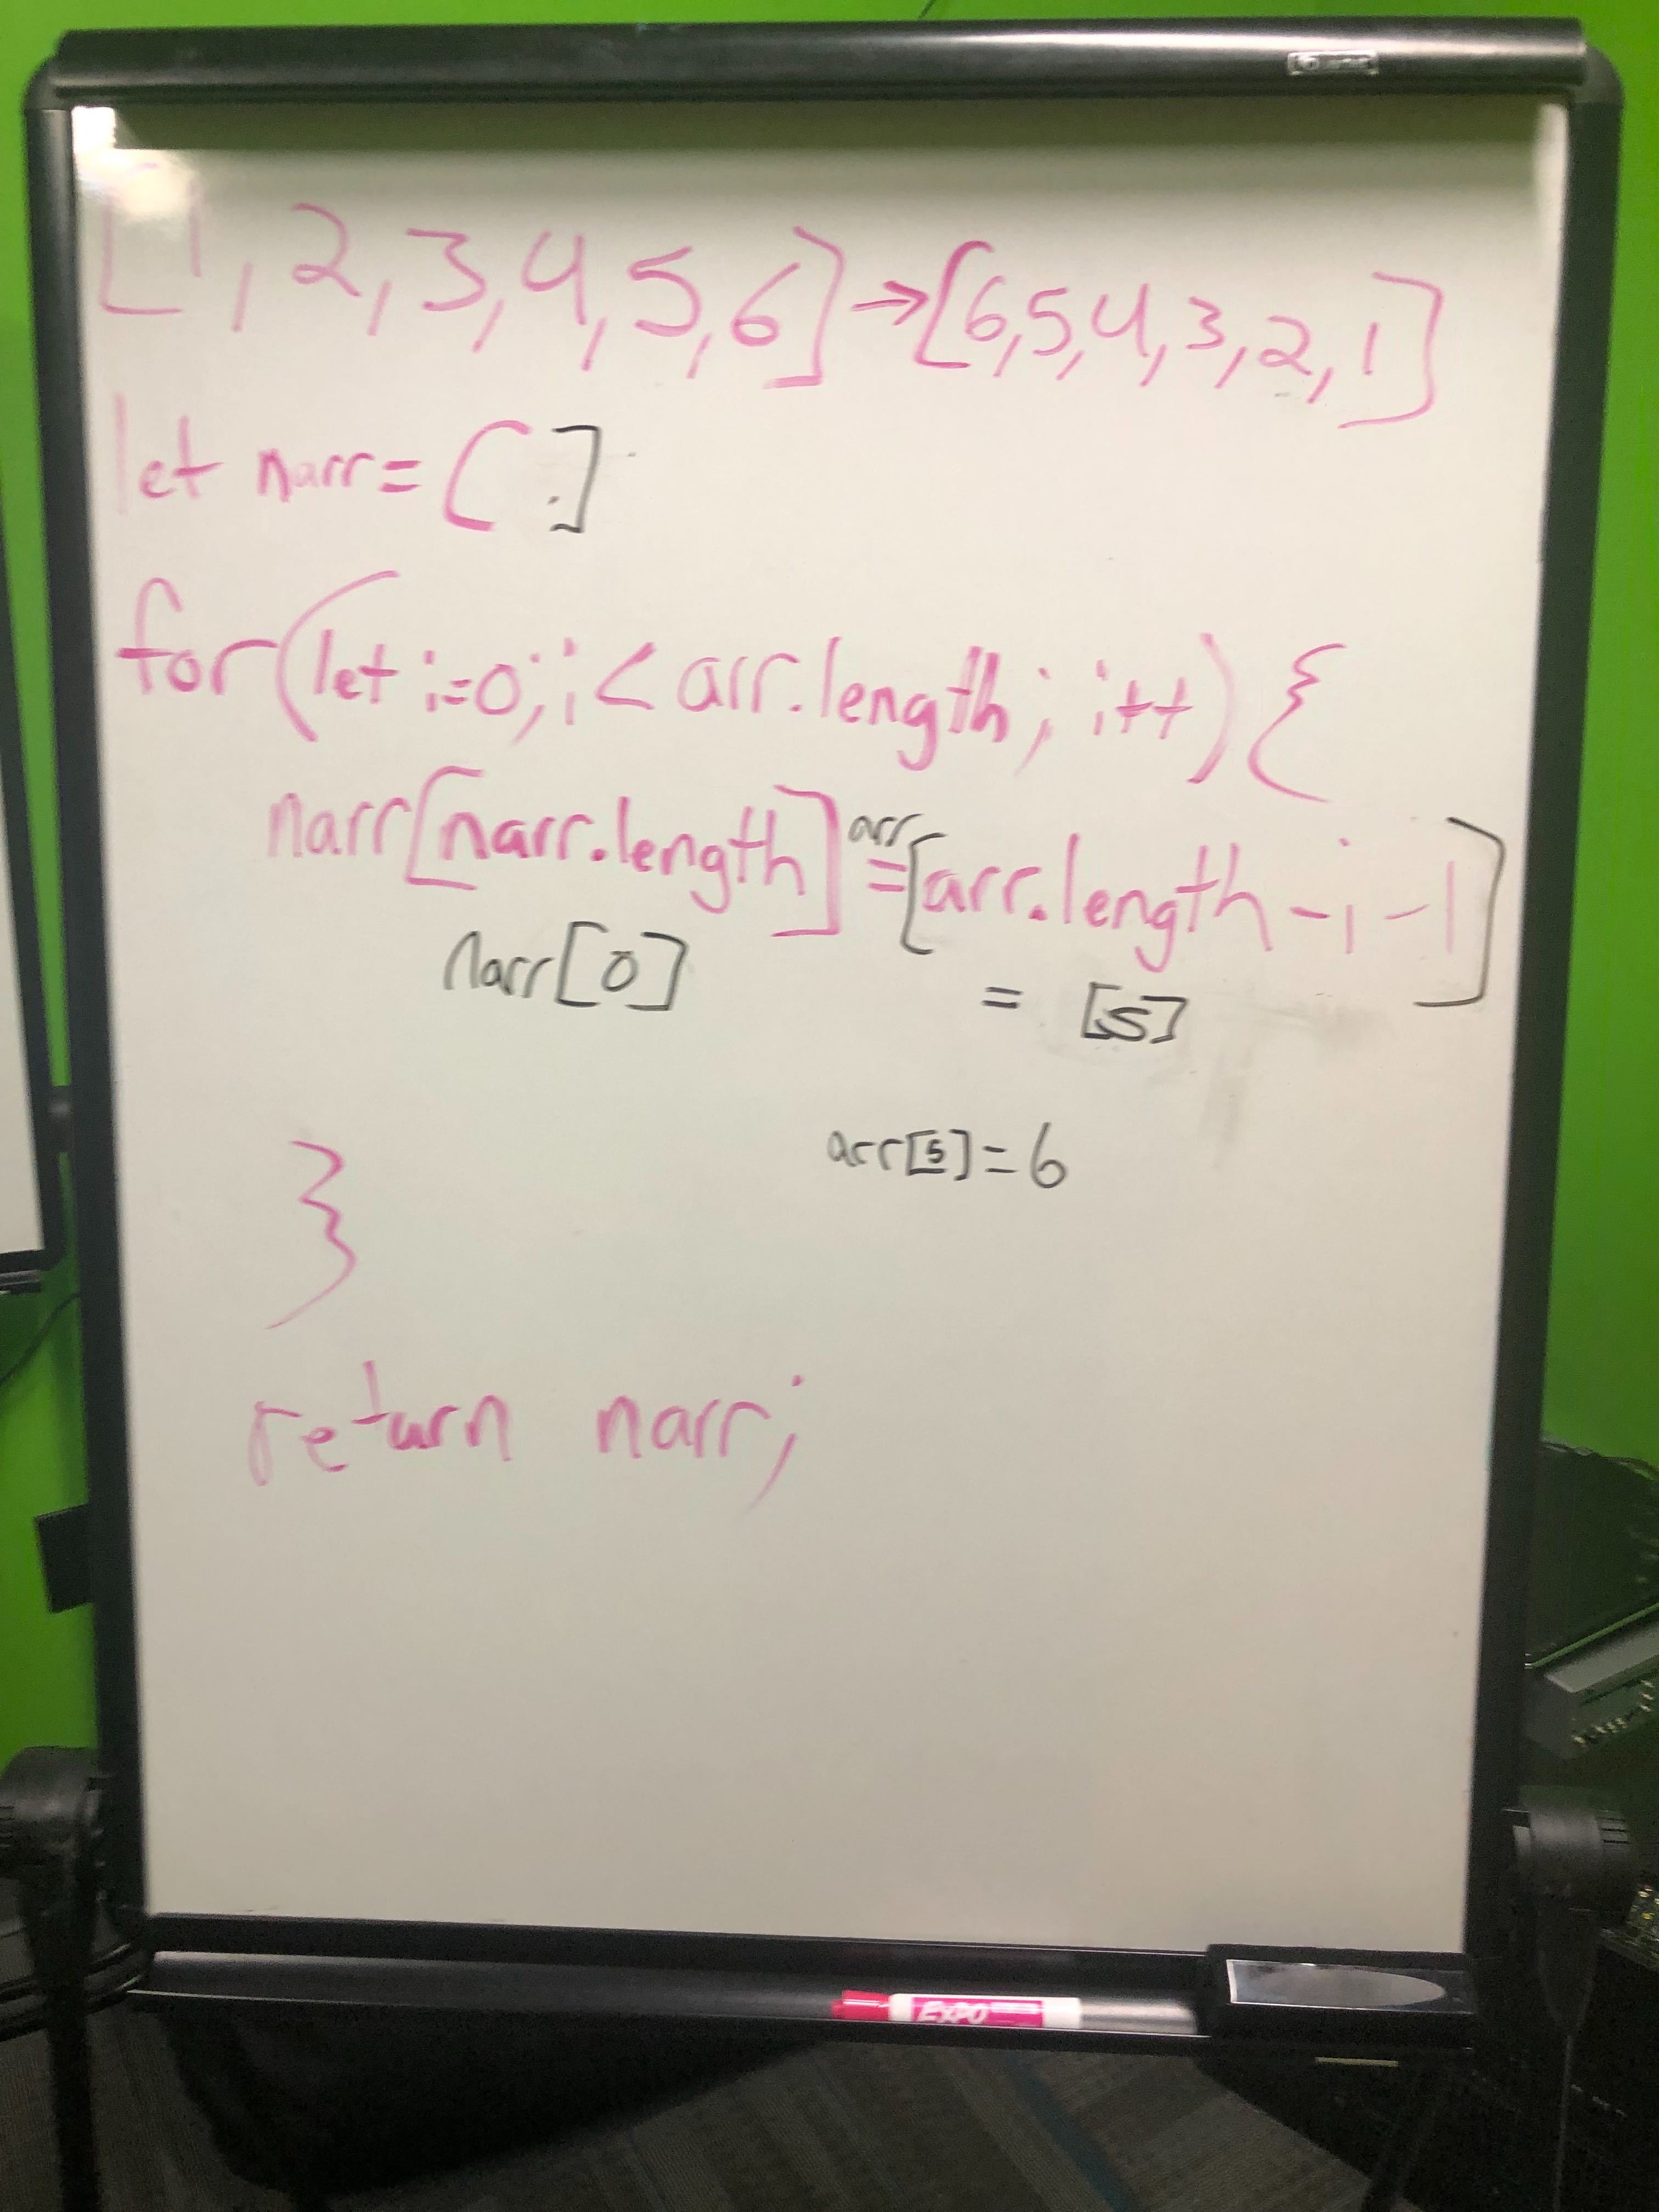 [1,2,3,4,5,6]→[6,5,4,3,2,1]
let narr=[ ]
for(let i=0;i<arr.length; i++){
narr[narr.length]=arr[arr.length-i-1]
narr[0] = [5]
arr[5]=6
}
return narr;
EXPO